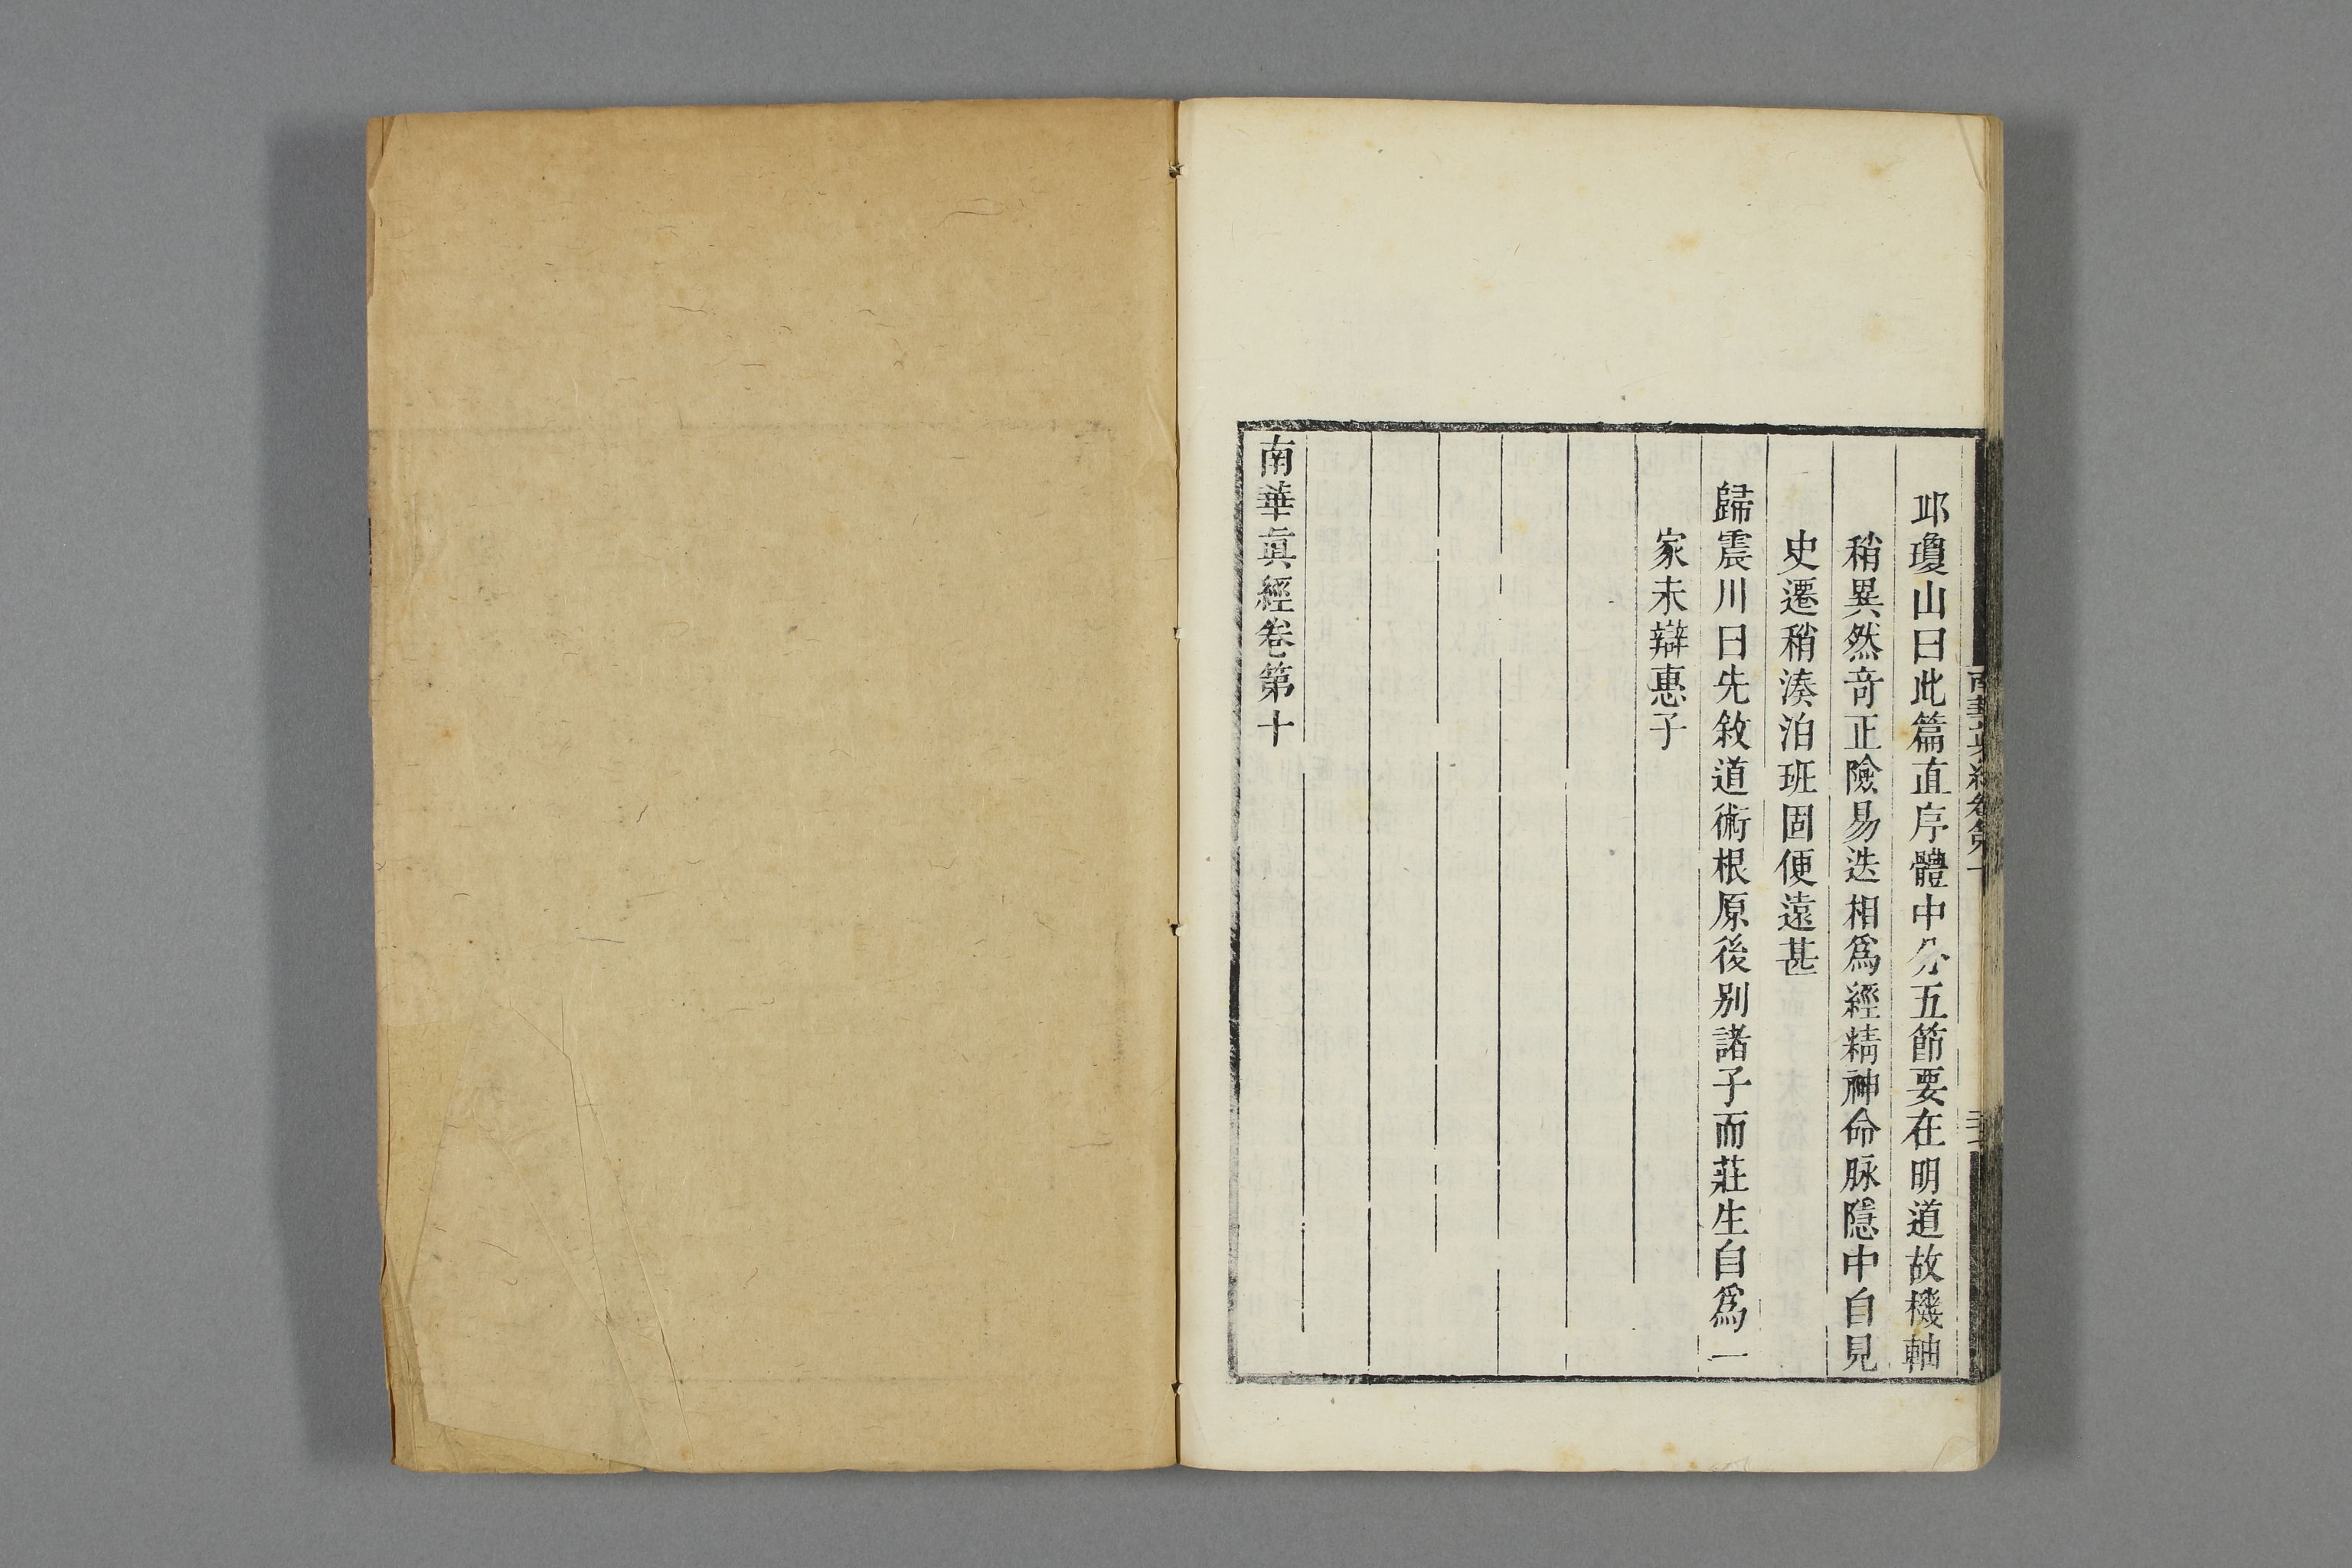 邱瓊山曰此篇直序體中分五節要在明道故機軸
稍異然奇正險易迭相爲經精神命脉隱中自見
史遷稍湊泊班固便遠甚
歸震川曰先敘道術根原後别諸子而莊生自爲一
家末辯惠子
南華眞經卷第十